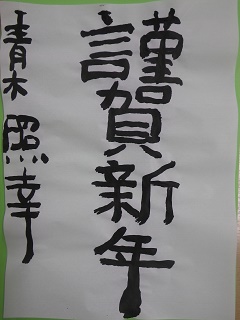 謹賀新年
青木照幸